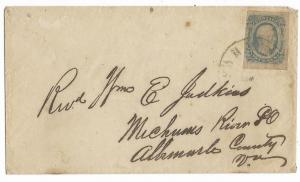 Revd Wms E Judkins
Mechums River PO
Albemarle County
Va